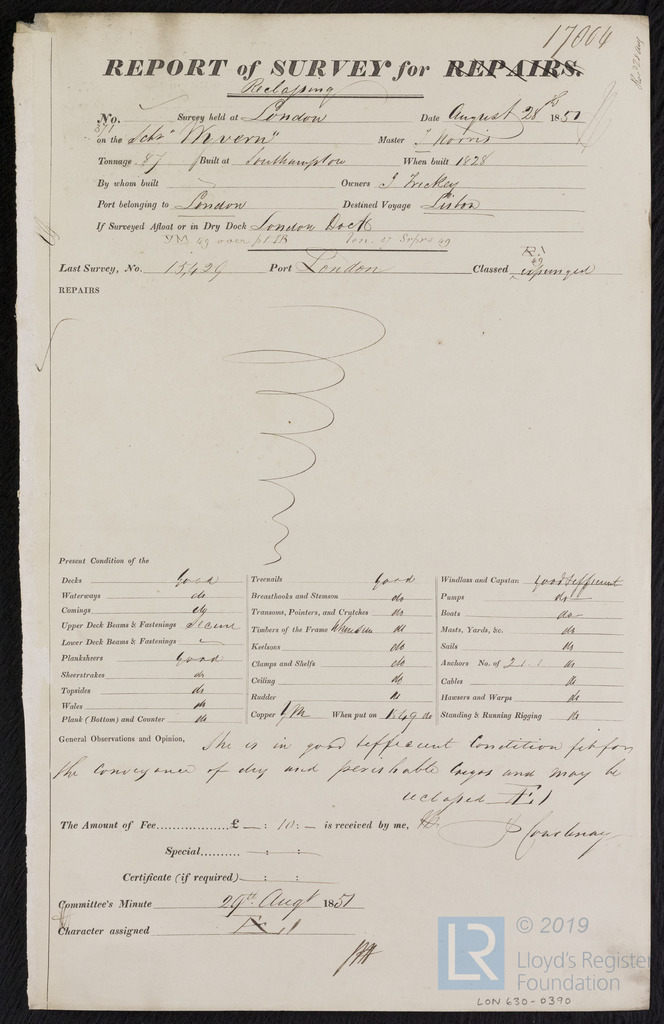 17004
REPORT of SURVEY for REPAIRS.
Reclassing
No. Survey held at London Date August 28th 1851
871
on the Schr "Wyvern" Master J Norris
Tonnage 87 Built at Southampton When built 1828
By whom built Owners J Trickey
Port belonging to London Destined Voyage Lisbon
If Surveyed Afloat or in Dry Dock London Dock
YM 49 over pt IR 49
Last Survey, No. 15,429 Port London Classed expunged
REPAIRS
Present Condition of the
Decks Good
Waterways do
Comings do
Upper Deck Beams & Fastenings Secure
Lower Deck Beams & Fastenings
Planksheers Good
Sheerstrakes do
Topsides do
Wales do
Plank (Bottom) and Counter do
Treenails good
Breasthooks and Stemson do
Transoms, Pointers, and Crutches do
Timbers of the Frame when seen do
Keelsons do
Clamps and Shelfs do
Ceiling do
Rudder do
Copper YM When put on 1849 do
Windlass and Capstan good & efficient
Pumps do
Boats do
Masts, Yards, &c. do
Sails do
Anchors No. of 2.1.1 do
Cables do
Hawsers and Warps do
Standing & Running Rigging do
General Observations and Opinion, She is in good & efficient Condition fit for
the conveyance of dry and perishable Cargos and may be
reclassed Æ1
The Amount of Fee £ — : 10 : — is received by me, P Courtenay
Special — : :
Certificate (if required) — : :
Committee's Minute 29th Augt 1851
Character assigned Æ 1
LR
© 2019
Lloyd's Register
Foundation
LON 630-0390